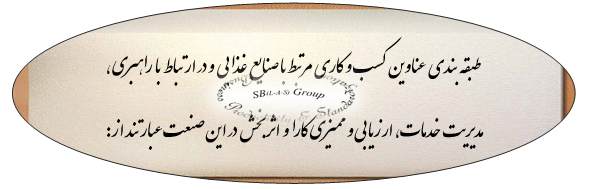 طبقه بندی عناوین کسب و کاری مرتبط با صنایع غذایی و در ارتباط با راهبری،
SB(L-A-S) Group
مدیریت خدمات، ارزیابی و ممیزی کارا و اثربخش در این صنعت عبارتند از: